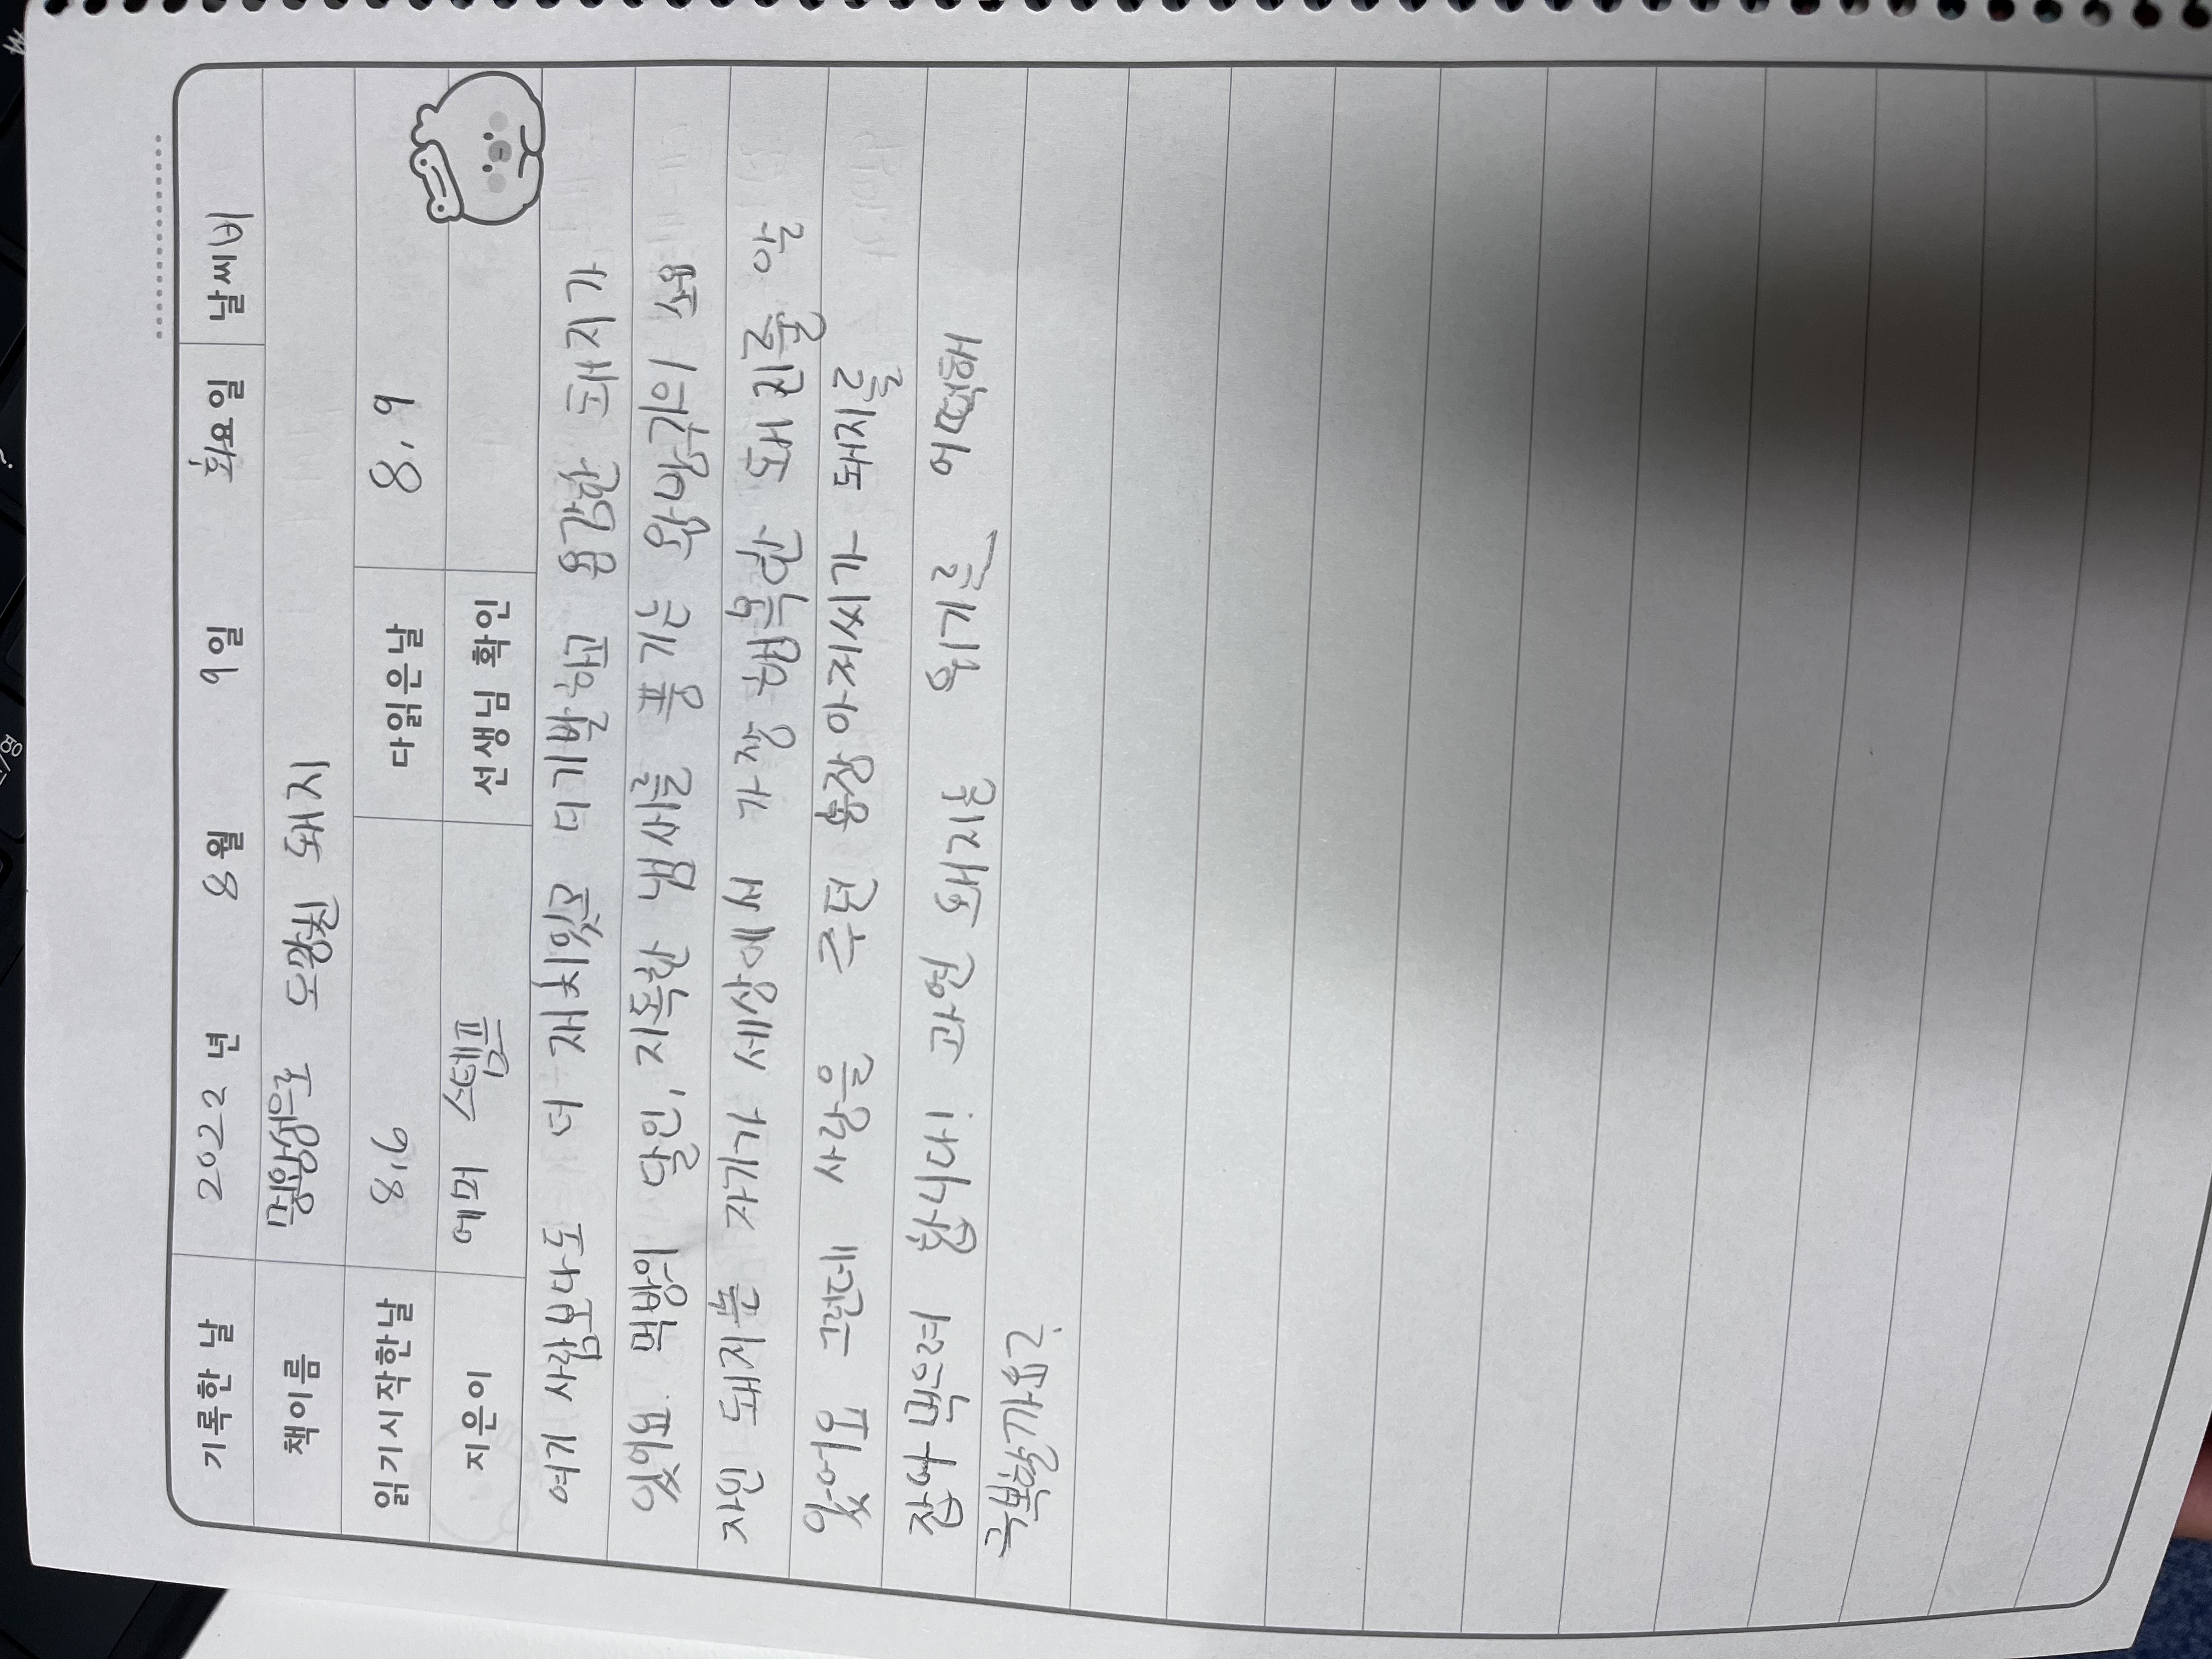 기록한 날 2022 년 8월 9일 화요일 날씨 비
책이름 명왕성으로 도망친 돼지
읽기시작한날 8,6 다읽은날 8,9
지은이 에머 스템프 선생님 확인
여기 사람보다도 더 재치있고 더기발하고 용감한 돼지가
있어요. 먹방의 달인, 지독한 냄새를 풍기는 왕방귀의 소유
자인 돼지는 자기가 세상에서 가장 행복한 돼진줄 알
았어요 그런데 사랑을 주던 농장 아저씨가 돼지를
잡아 먹으려 합니다! 과연 돼지는 위기를 어떡해
극복할까요?